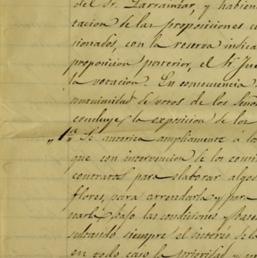 del Sr. Larrainzar, y habien
tacion de las proposiciones co
sionados, con la reserva indica
proposicion anterior, el Sr. Jue
la votacion. En consecuencia
unanimidad de votos de los Seño
concluye la exposicion de los
1ª Se autoriza ampliamente á la
que con intervencion de los comi
contratos para elaborar algo
flores, para arrendarla y por
narla, bajo las condiciones y bases
sultando siempre el interes de la
en todo caso la